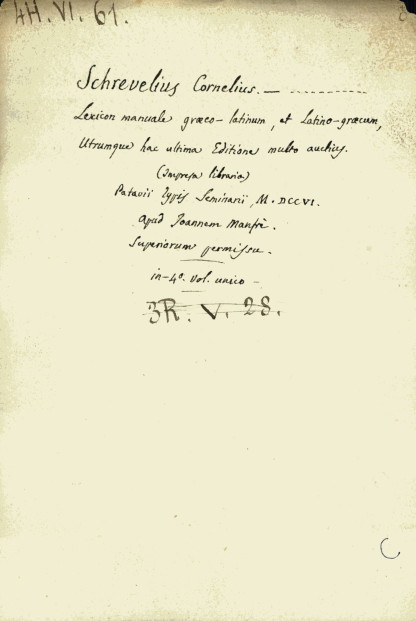 4H. VI. 61.
Schrevelius Cornelius. —
Lexicon manuale græco-latinum, et Latino-græcum,
Utrumque hac ultima Editione multo auctius.
(Impresa libraria)
Patavii Typis Seminarii, M. DCCVI.
Apud Joannem Manfrè.
Superiorum permissu.
in-4º. Vol. unico —
3R. V. 28.
C